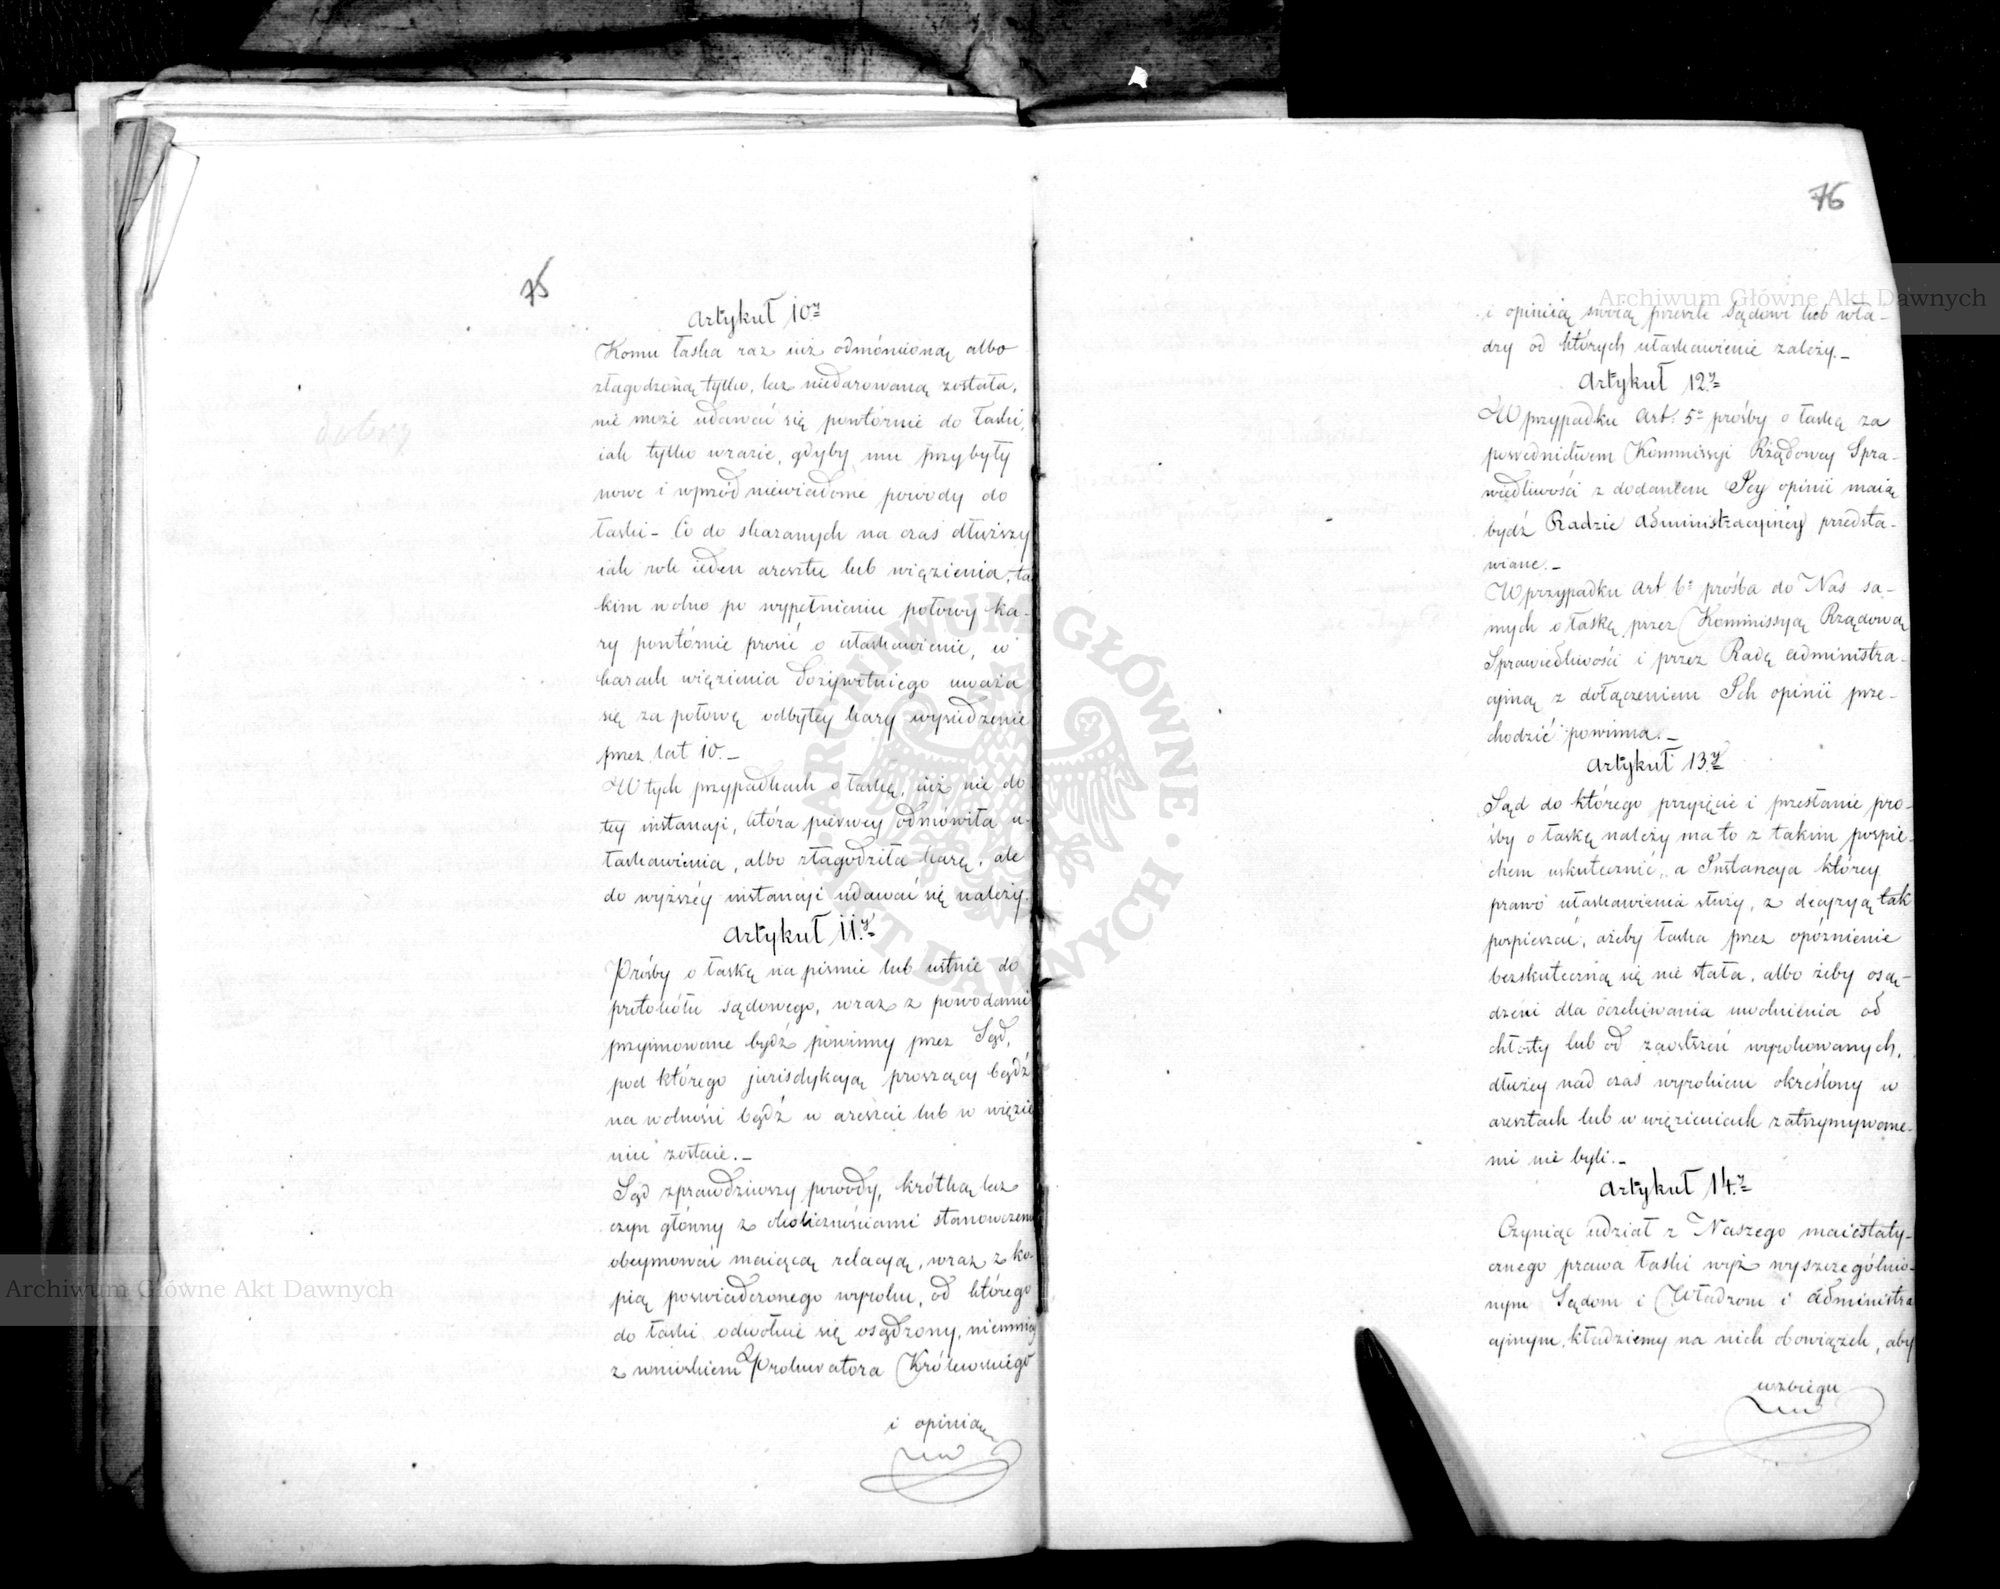 75
Artykuł 10ty
Komu łaska raz iuż odmówioną albo
złagodzoną tylko, lecz niedarowaną została,
nie może udawać się powtórnie do łaski,
iak tylko wrazie, gdyby mu przybyły
nowe i wprzód niewiadome powody do
łaski – Co do skazanych na czas dłuższy
iak rok ieden aresztu lub więzienia, ta
kim wolno po wypełnieniu połowy ka-
ry powtórnie prosić o ułaskawienie, w
karach więzienia dożywotniego uważa
się za połowę odbytey kary wysiedzenie
przez lat 10. –
W tych przypadkach o łaskę, iuż nie do
tey instancyi, która pierwey odmówiła u-
łaskawienia, albo złagodziła karę, ale
do wyższéy instancyi udawać się należy.
Artykuł 11ty
Prośby o łaskę na pismie lub ustnie do
protokółu sądowego, wraz z powodami
przyimowane bydź powinny przez Sąd,
pod którego jurisdykcyą proszący bądź
na wolności bądź w areszcie lub w więzie
niu zostaie. –
Sąd zprawdziwszy powody, krótką lecz
czyn główny z okolicznościami stanowczemi
obeymować maiącą relacyą, wraz z ko-
pią poswiadczonego wyroku, od którego
do łaski odwołuie się osądzony, niemniey
z wnioskiem Prokuratora Królewskiego
i opinią
76
i opinią swoią przeszle Sądowi lub wła-
dzy od których ułaskawienie zależy. –
Artykuł 12ty
W przypadku Art. 5o prośby o łaskę za
posrednictwem Kommissyi Rządowey Spra-
wiedliwości z dodaniem Jey opinii maią
bydź Radzie Administracyinéy przedsta-
wiane. –
W przypadku Art 6o prośba do Nas sa-
mych o łaskę przez Kommissyą Rządową
Sprawiedliwości i przez Radę Administra-
cyiną z dołączeniem Ich opinii prze-
chodzić powinna. –
Artykuł 13ty
Sąd do którego przyięcie i przesłanie pro-
śby o łaskę należy ma to z takim pospie-
chem uskutecznić, a Instancya którey
prawo ułaskawienia służy, z decyzyą tak
pospieszać, ażeby łaska przez opoznienie
bezskuteczną się nie stała, albo żeby osą-
dzeni dla oczekiwania uwolnienia od
chłosty lub od zaostrzeń wyrokowanych,
dłużey nad czas wyrokiem określony w
aresztach lub w więzieniach zatrzymywane-
mi nie byli. –
Artykuł 14ty
Czyniąc udział z Naszego maiestaty-
cznego prawa łaski wyż wyszczególnio-
nym Sądom i Władzom i Administra
cyinym, kładziemy na nich obowiązek, aby
wzbiegu
Archiwum Główne Akt Dawnych
Archiwum Główne Akt Dawnych
ARCHIWUM GŁÓWNE AKT DAWNYCH